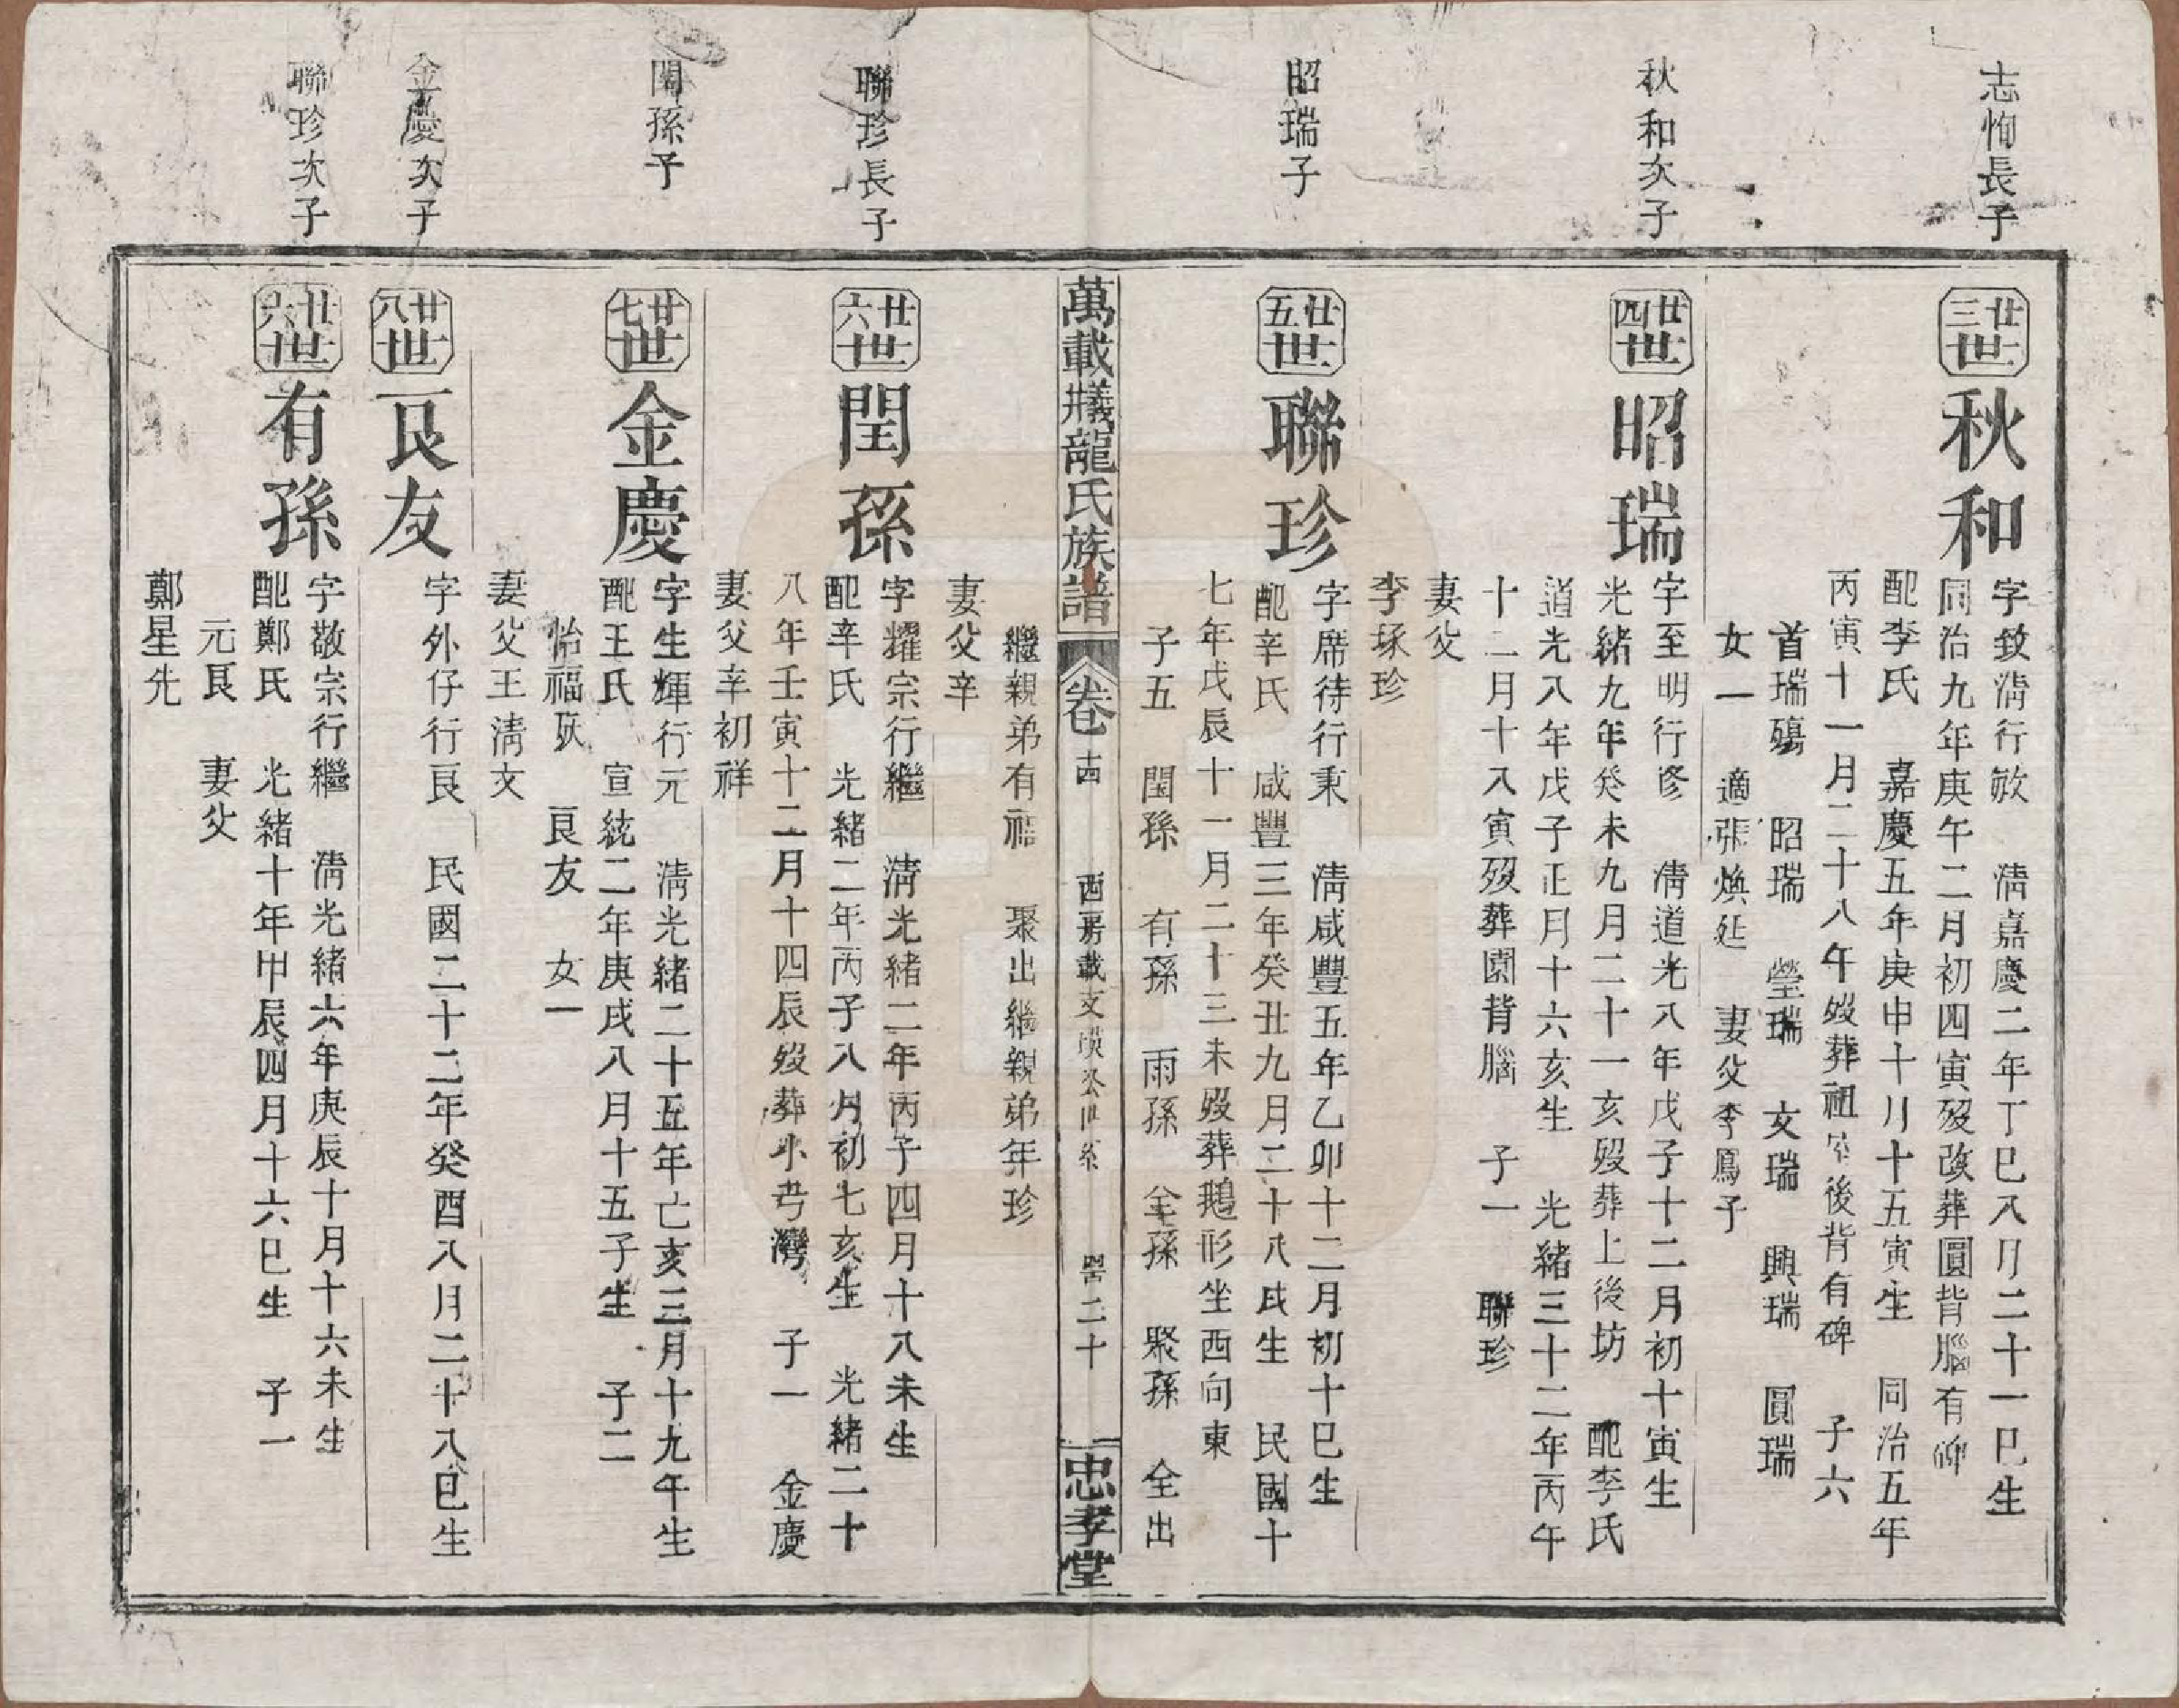 志恂長子
廿三世
秋和
字致清行敏 清嘉慶二年丁巳八月二十一巳生
同治九年庚午二月初四寅歿改葬圓背腦有碑
配李氏 嘉慶五年庚申十月十五寅生 同治五年
丙寅十一月二十八午歿葬祖堂後背有碑 子六
首瑞殤 昭瑞 瑩瑞 文瑞 興瑞 圓瑞
女一 適張煥廷 妻父李鳳子
秋和次子
廿四世
昭瑞
字至明行修 清道光八年戊子十二月初十寅生
光緒九年癸未九月二十一亥歿葬上後坊 配李氏
道光八年戊子正月十六亥生 光緒三十二年丙午
十二月十八寅歿葬園背腦 子一 聯珍
妻父
李琢珍
昭瑞子
廿五世
聯珍
字席待行秉 清咸豐五年乙卯十二月初十巳生
配辛氏 咸豐三年癸丑九月二十八戌生 民國十
七年戊辰十一月二十三未歿葬鵝形坐西向東
子五 閏孫 有孫 雨孫 全孫 聚孫 全出
萬載㸌龍氏族譜
卷 十四 西房載支漢公世系 二十
忠孝堂
繼親弟有福 聚出繼親弟年珍
妻父辛
聯珍長子
廿六世
閏孫
字耀宗行繼 清光緒二年丙子四月十八未生
配辛氏 光緒二年丙子八月初七亥生 光緒二十
八年壬寅十二月十四辰歿葬水灣 子一 金慶
妻父辛初祥
閏孫子
廿七世
金慶
字生輝行元 清光緒二十五年己亥三月十九午生
配王氏 宣統二年庚戌八月十五子生 子二
怡福殀 艮友 女一
妻父王清文
金慶次子
廿八世
艮友
字外仔行艮 民國二十二年癸酉八月二十八巳生
聯珍次子
廿六世
有孫
字敬宗行繼 清光緒六年庚辰十月十六未生
配鄭氏 光緒十年甲辰四月十六巳生 子一
元艮 妻父
鄭星先